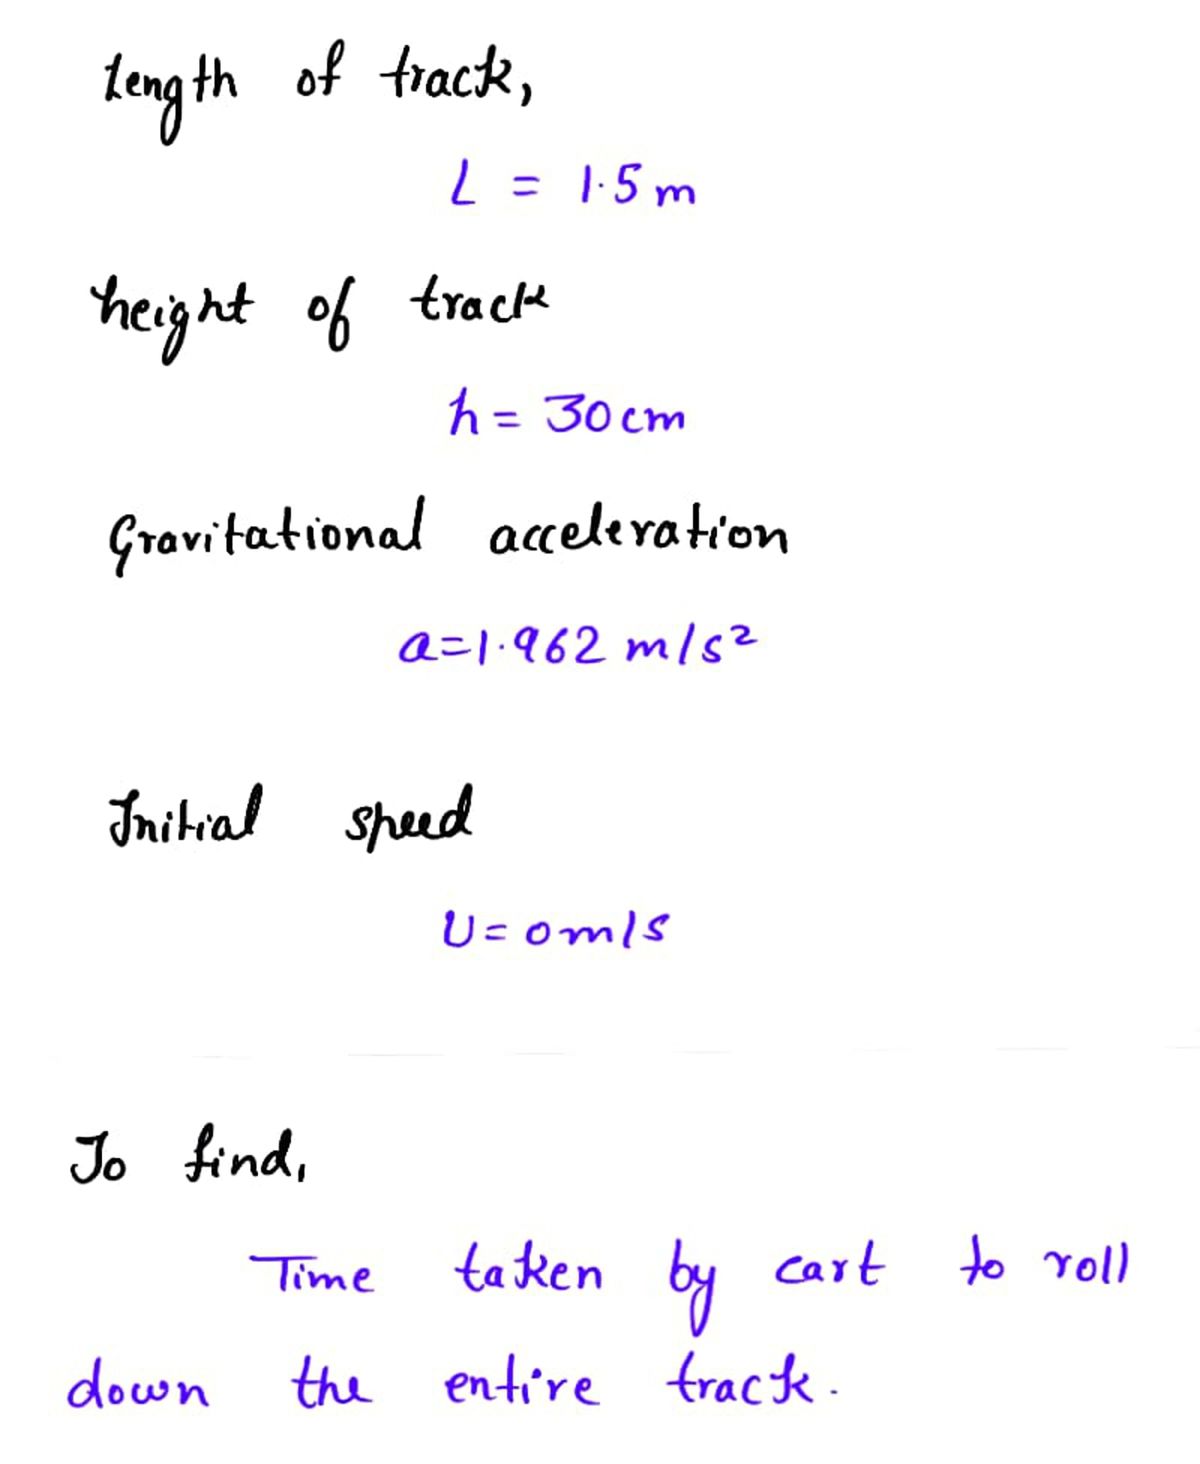 Length of track,
L = 1.5 m
height of track
h = 30 cm
Gravitational acceleration
a=1.962 m/s²
Initial speed
U = 0 m/s
To find,
Time taken by cart to roll
down the entire track.